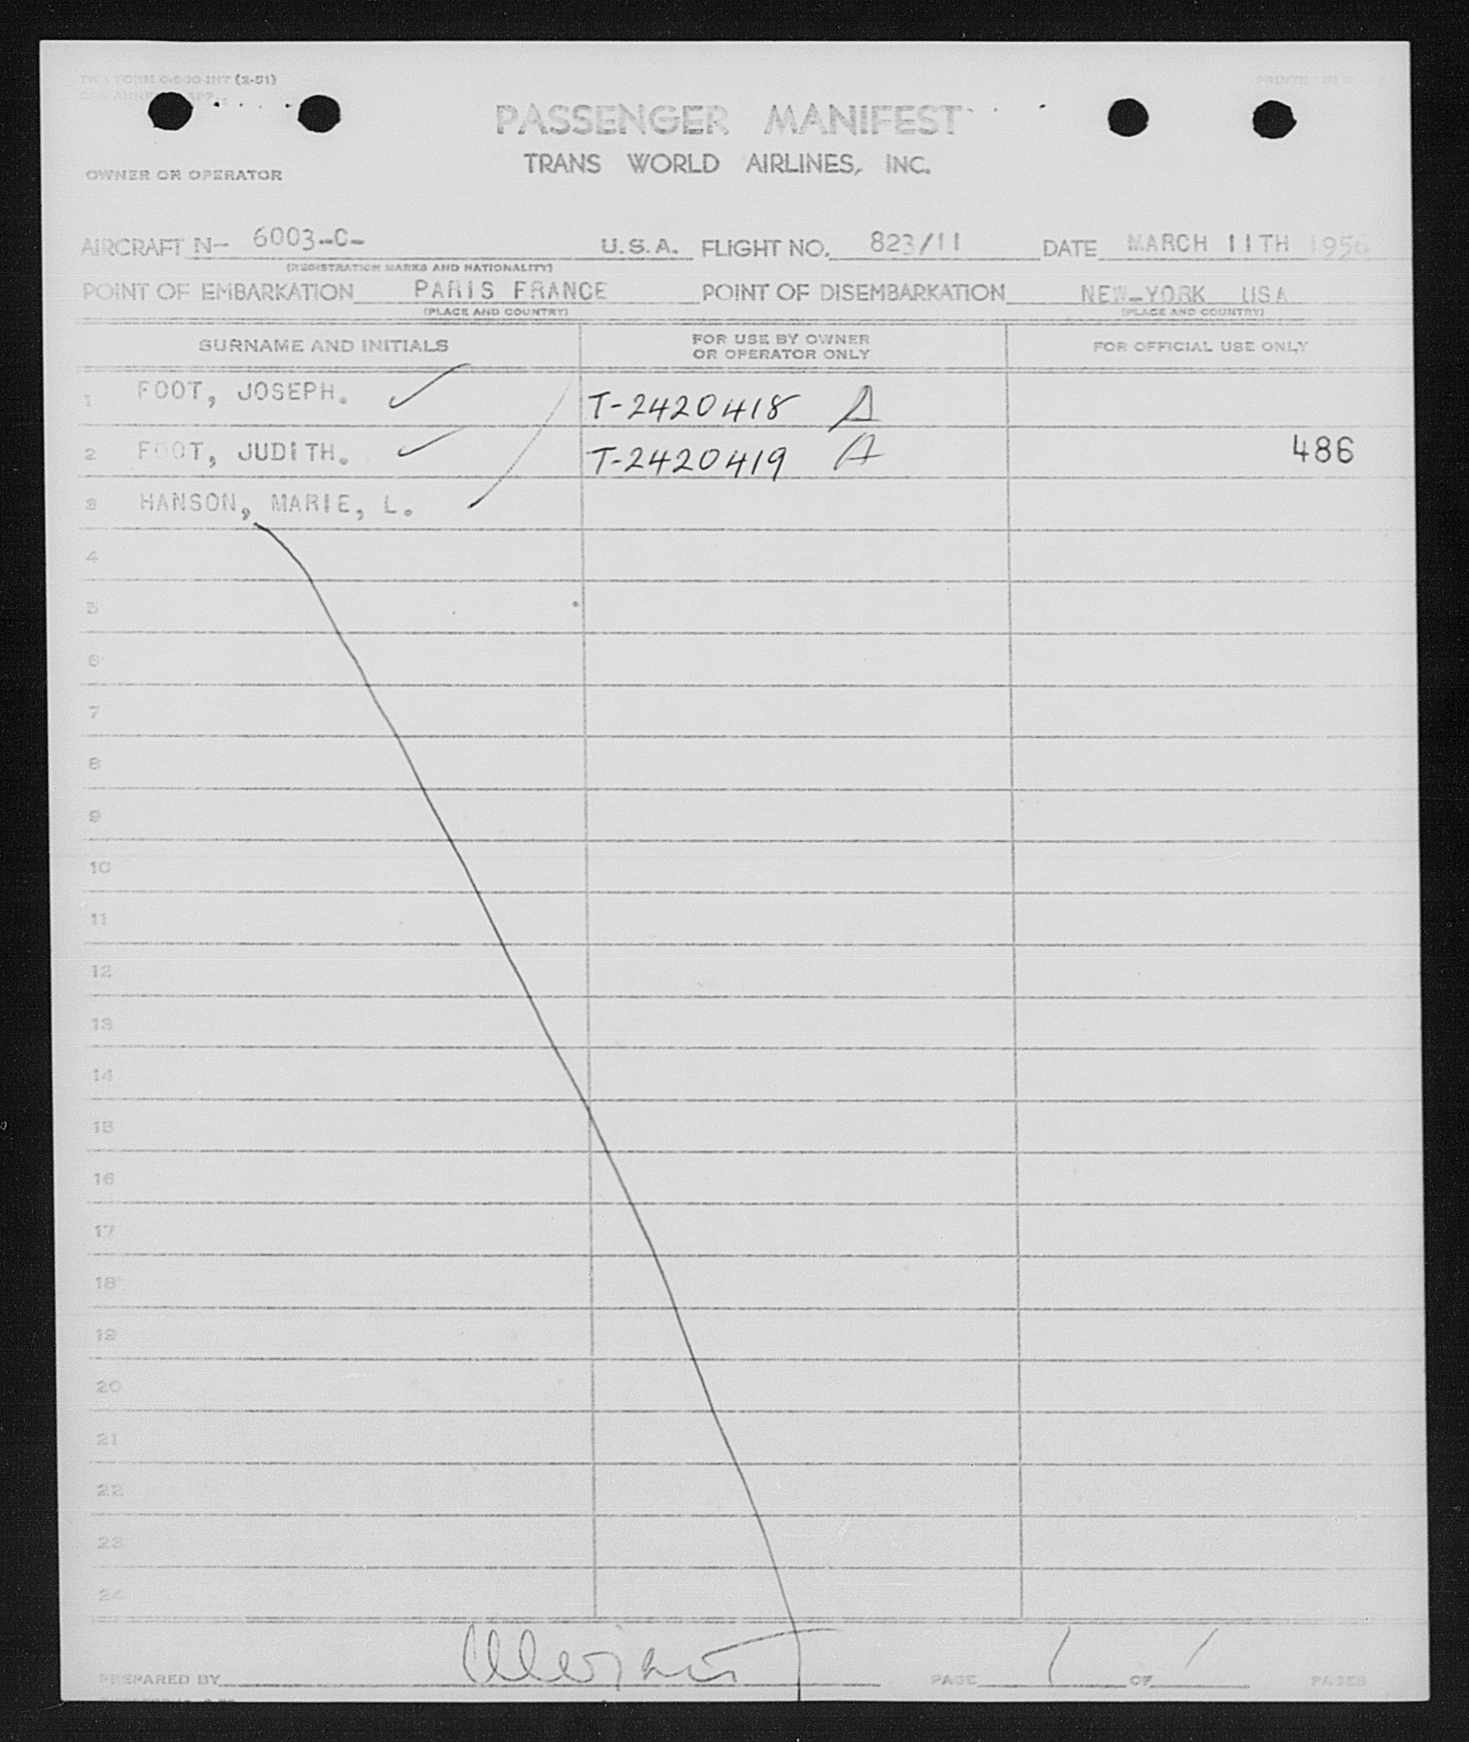 (2-51)
PASSENGER MANIFEST
TRANS WORLD AIRLINES, INC.
OWNER OR OPERATOR
AIRCRAFT N- 6003-C- U.S.A. FLIGHT NO. 823/11 DATE MARCH 11TH 1956
(REGISTRATION MARKS AND NATIONALITY)
POINT OF EMBARKATION PARIS FRANCE POINT OF DISEMBARKATION NEW-YORK USA
(PLACE AND COUNTRY) (PLACE AND COUNTRY)
SURNAME AND INITIALS FOR USE BY OWNER OR OPERATOR ONLY FOR OFFICIAL USE ONLY
1 FOOT, JOSEPH. T-2420418 A
2 FOOT, JUDITH. T-2420419 A 486
3 HANSON, MARIE, L.
4
5
6
7
8
9
10
11
12
13
14
15
16
17
18
19
20
21
22
23
24
PREPARED BY PAGE 1 OF 1 PAGES